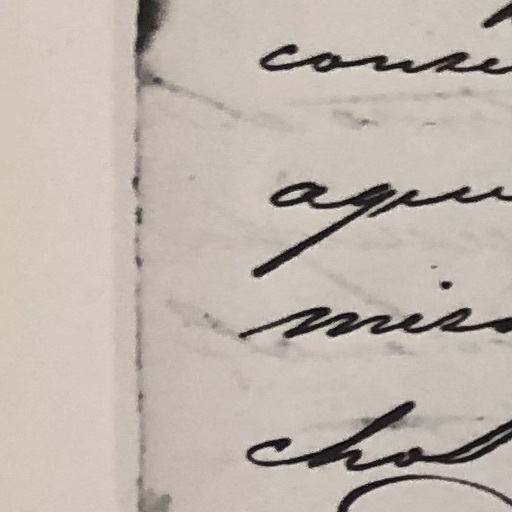 conse
aqui
miss
chol